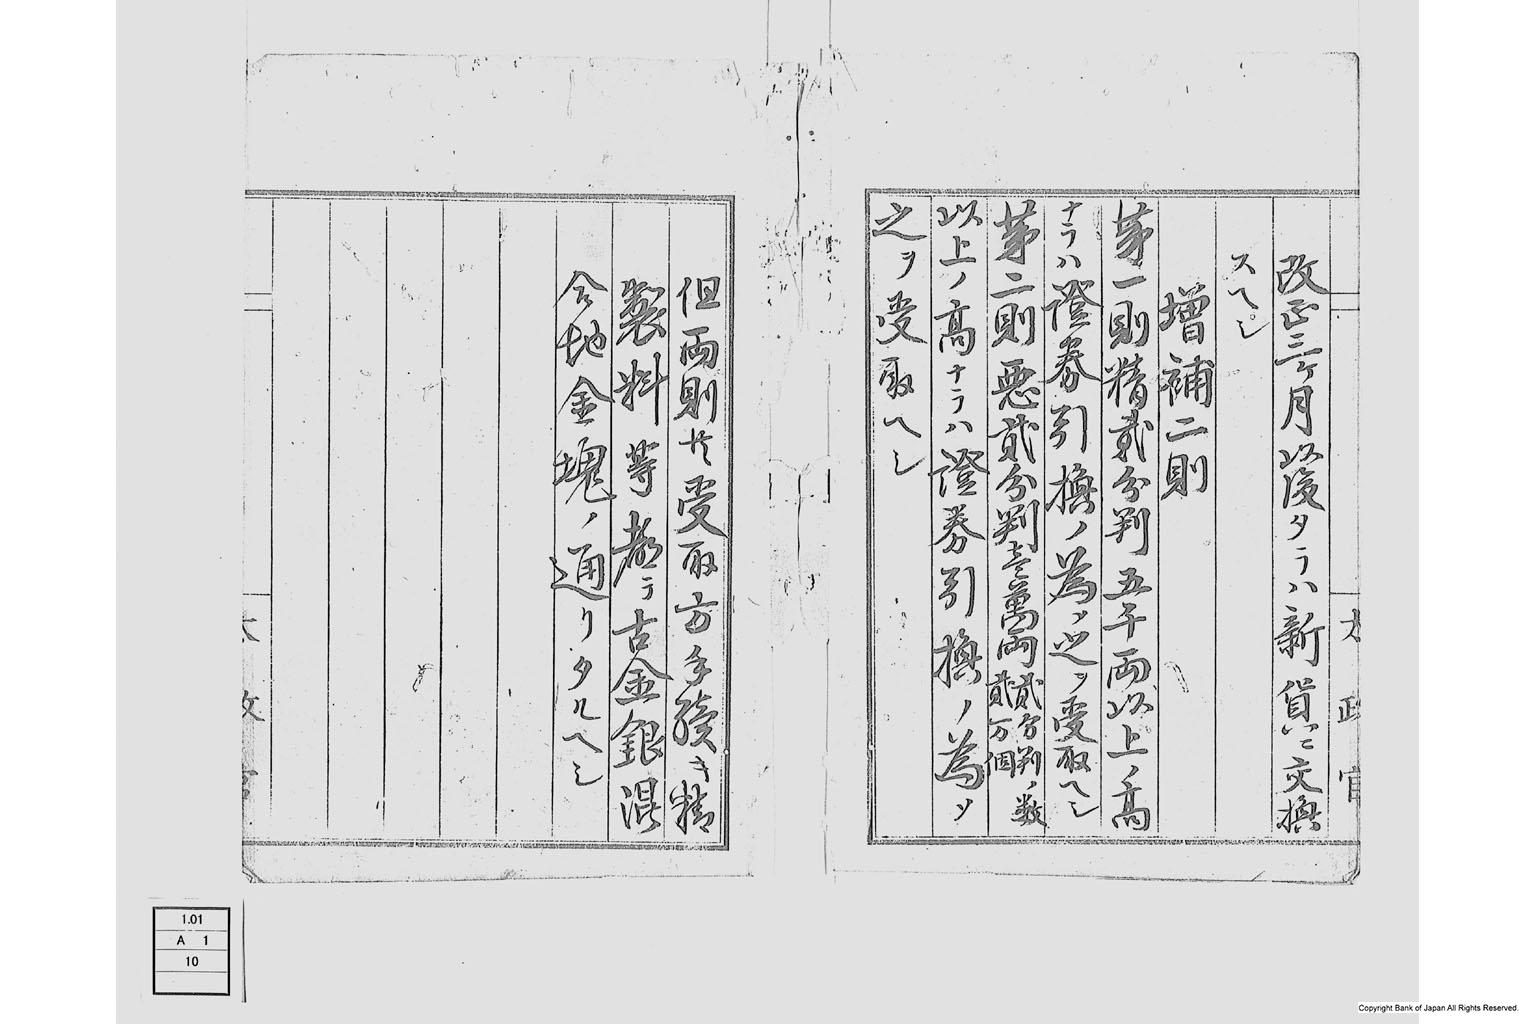 太政官
改正三ヶ月以後タラハ新貨ニ交換
スヘシ
増補二則
第一則精貳分判五千両以上ノ高
ナラハ證券引換ノ為メ之ヲ受取ヘシ
第二則悪貳分判壱萬両貳分判ノ数貳万個
以上ノ高ナラハ證券引換ノ為メ
之ヲ受取ヘシ
但両則共受取方手續キ精
製料等都テ古金銀混
合地金塊ノ通リタルヘシ
太政官
1.01
A 1
10
Copyright Bank of Japan All Rights Reserved.